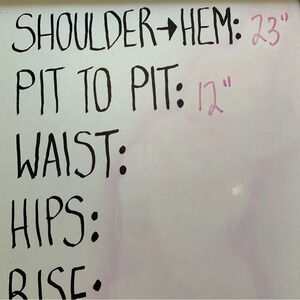 SHOULDER→HEM: 23"
PIT TO PIT: 12"
WAIST:
HIPS:
RISE: